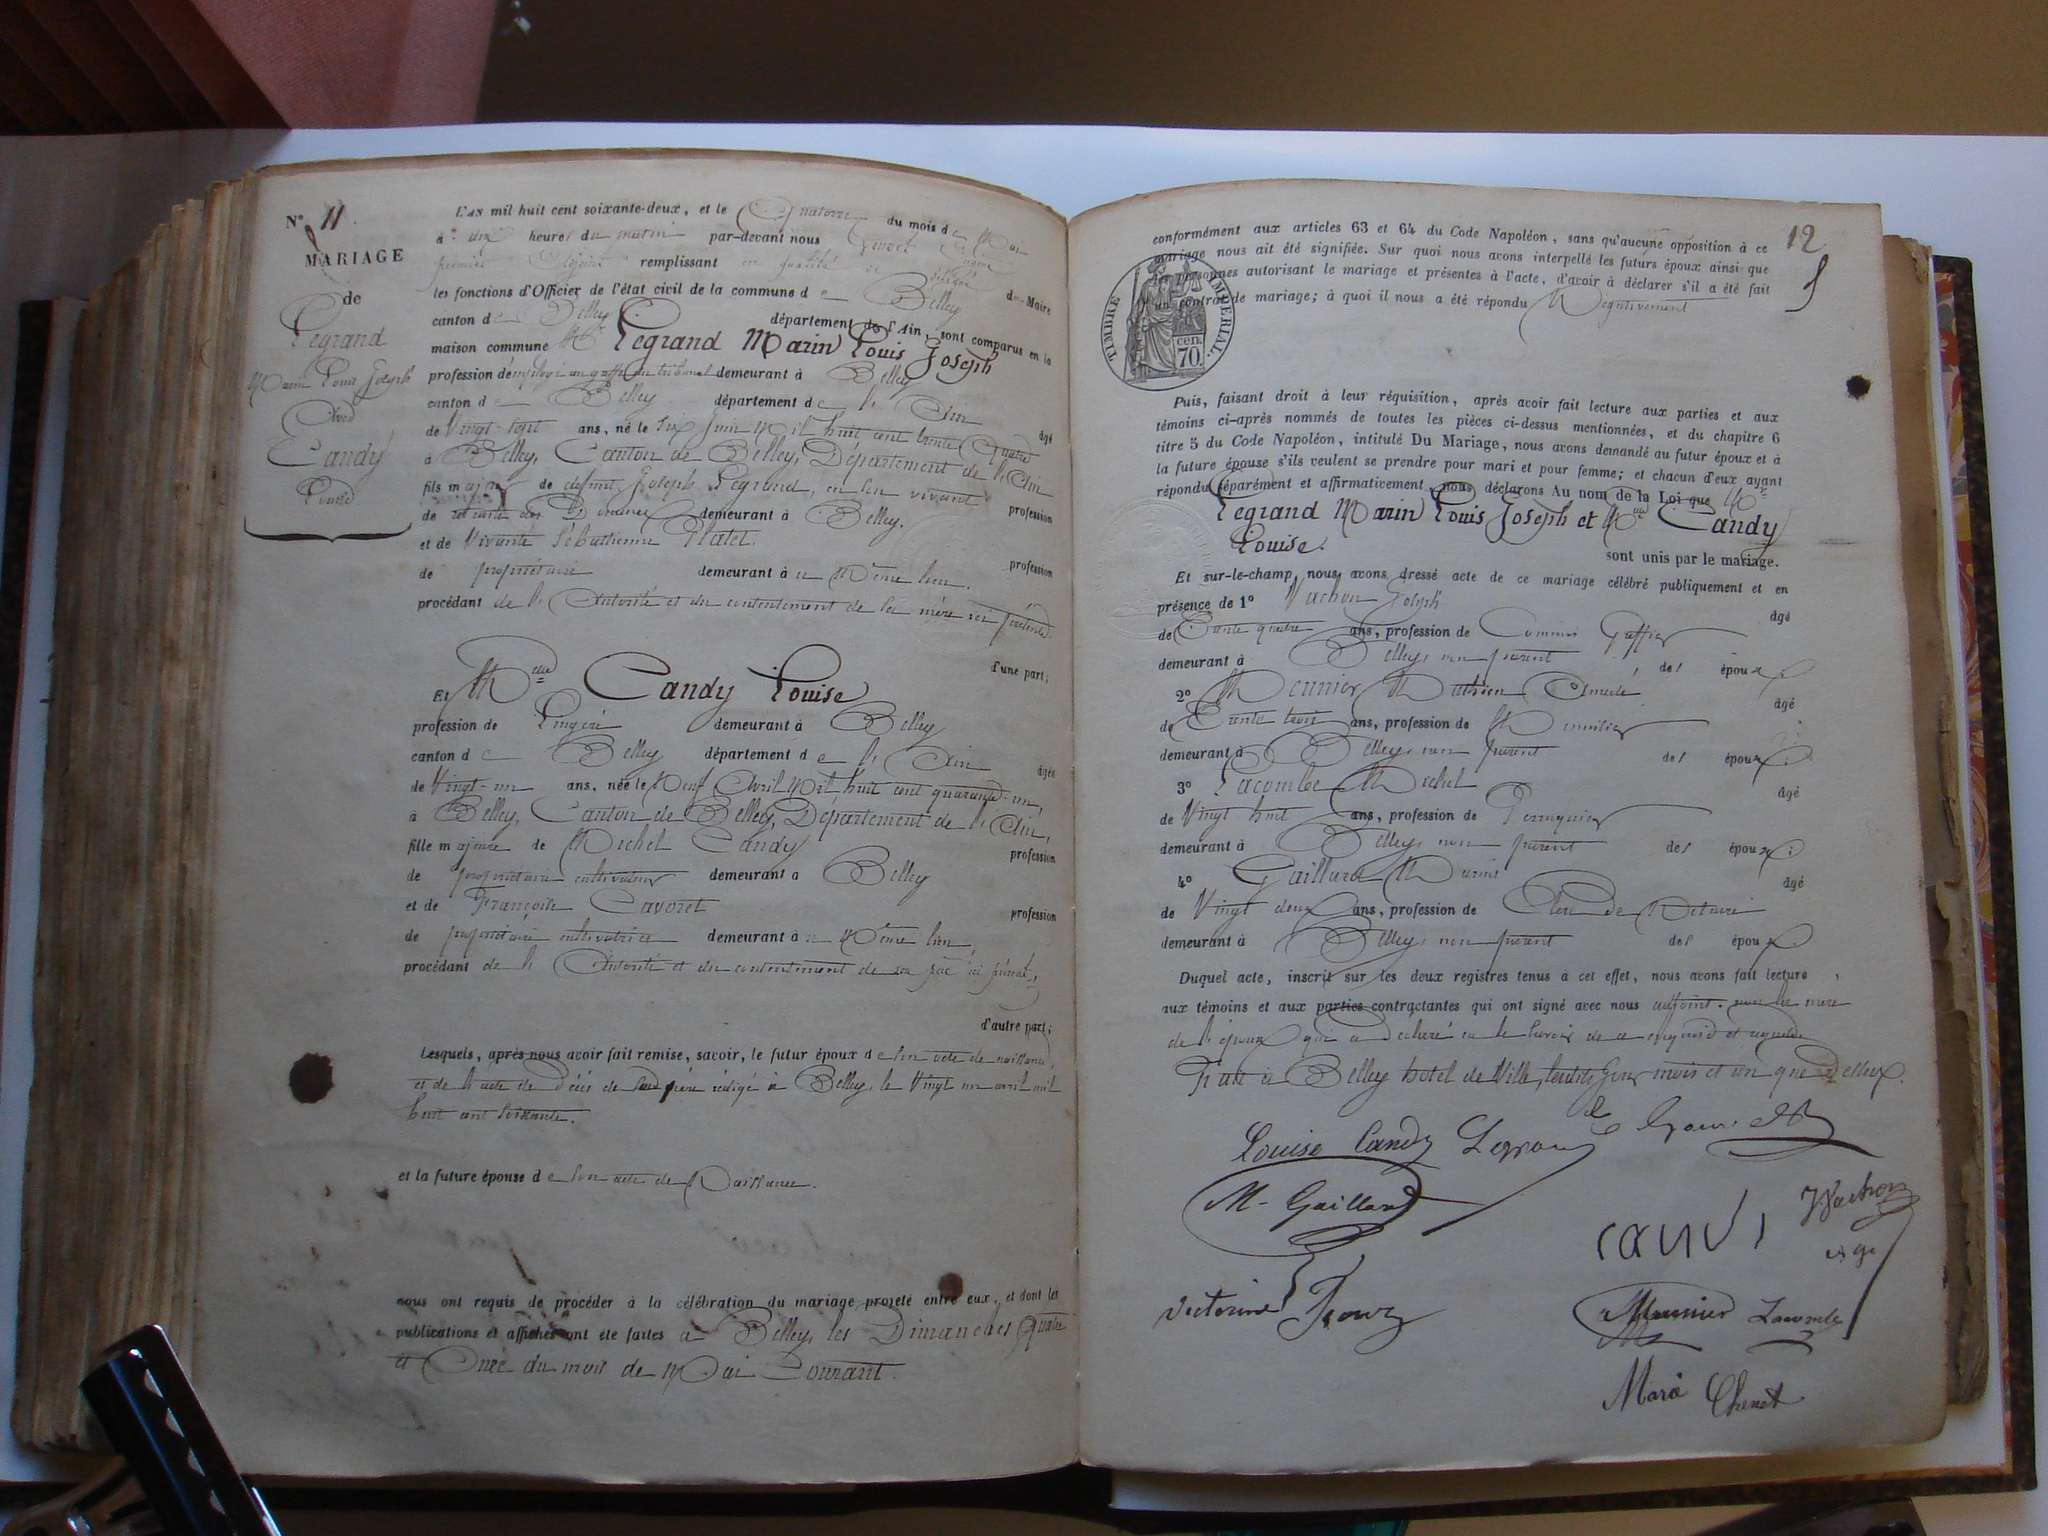 N° 11
MARIAGE
de
Legrand
Marin Louis Joseph
Avec
Candy
Louise
L'AN mil huit cent soixante-deux, et le Quatorze du mois de Mai
à dix heures du matin par-devant nous
premier Adjoint remplissant en qualité de délégué
les fonctions d'Officier de l'état civil de la commune de Belley du Maire
canton de Belley département de l'Ain, sont comparus en la
maison commune Mr Legrand Marin Louis Joseph
profession d'employé au greffe du tribunal demeurant à Belley
canton de Belley département de l'Ain âgé
de Vingt-sept ans, né le Six Juin Mil huit cent trente Quatre
à Belley, Canton de Belley, Département de l'Ain
fils majeur de défunt Joseph Legrand, en son vivant profession
de retraité des Douanes demeurant à Belley.
et de Vivante Sébastienne Platet. profession
de propriétaire demeurant à u Même lieu.
procédant de l'Autorité et du contentement de sa mère ici présente.
d'une part;
Et Melle Candy Louise
profession de Lingère demeurant à Belley
canton de Belley département de l'Ain âgée
de Vingt-un ans, née le Neuf Avril Mil huit cent quarante-un,
à Belley, Canton de Belley, Département de l'Ain,
fille majeure de Michel Candy profession
de propriétaire cultivateur demeurant à Belley
et de Françoise Cavoret profession
de propriétaire cultivatrice demeurant à u Même lieu,
procédant de l'Autorité et du contentement de son père ici présent,
d'autre part;
Lesquels, après nous avoir fait remise, savoir, le futur époux de son acte de naissance,
et de l'acte de Décès de Sond père rédigé à Belley, le Vingt un avril mil
huit cent soixante.
et la future épouse de son acte de Naissance.
nous ont requis de procéder à la célébration du mariage projeté entre eux, et dont les
publications et affiches ont été faites à Belley, les Dimanches Quatre
et Onze du mois de Mai Courant.
12
conformément aux articles 63 et 64 du Code Napoléon, sans qu'aucune opposition à ce
mariage nous ait été signifiée. Sur quoi nous avons interpellé les futurs époux ainsi que
personnes autorisant le mariage et présentes à l'acte, d'avoir à déclarer s'il a été fait
un contrat de mariage; à quoi il nous a été répondu Négativement
TIMBRE IMPÉRIAL.
70 cen.
Puis, faisant droit à leur réquisition, après avoir fait lecture aux parties et aux
témoins ci-après nommés de toutes les pièces ci-dessus mentionnées, et du chapitre 6
titre 5 du Code Napoléon, intitulé Du Mariage, nous avons demandé au futur époux et à
la future épouse s'ils veulent se prendre pour mari et pour femme; et chacun d'eux ayant
répondu séparément et affirmativement, nous déclarons Au nom de la Loi que Mr
Legrand Marin Louis Joseph et Melle Candy
Louise.
sont unis par le mariage.
Et sur-le-champ, nous avons dressé acte de ce mariage célébré publiquement et en
présence de 1° Vachon Joseph âgé
de Trente quatre ans, profession de Commis Greffier
demeurant à Belley, non parent des époux.
2° Meunier Mathieu Aimé âgé
de Trente trois ans, profession de Menuisier
demeurant à Belley, non parent des époux.
3° Lacombe Michel âgé
de Vingt huit ans, profession de Perruquier
demeurant à Belley, non parent des époux.
4° Gaillard Marin âgé
de Vingt deux ans, profession de Clerc de Notaire
demeurant à Belley, non parent des époux
Duquel acte, inscrit sur les deux registres tenus à cet effet, nous avons fait lecture
aux témoins et aux parties contractantes qui ont signé avec nous adjoint. non la mère
de l'époux qui a déclaré ne le savoir de ce enquise et
Fait à Belley hôtel de Ville, lesdits Jour mois et an que Dessus.
Louise Candy Legrand
M. Gaillard
JVachon
candi
Victorine
Meunier Lacombe
Marie Chenet